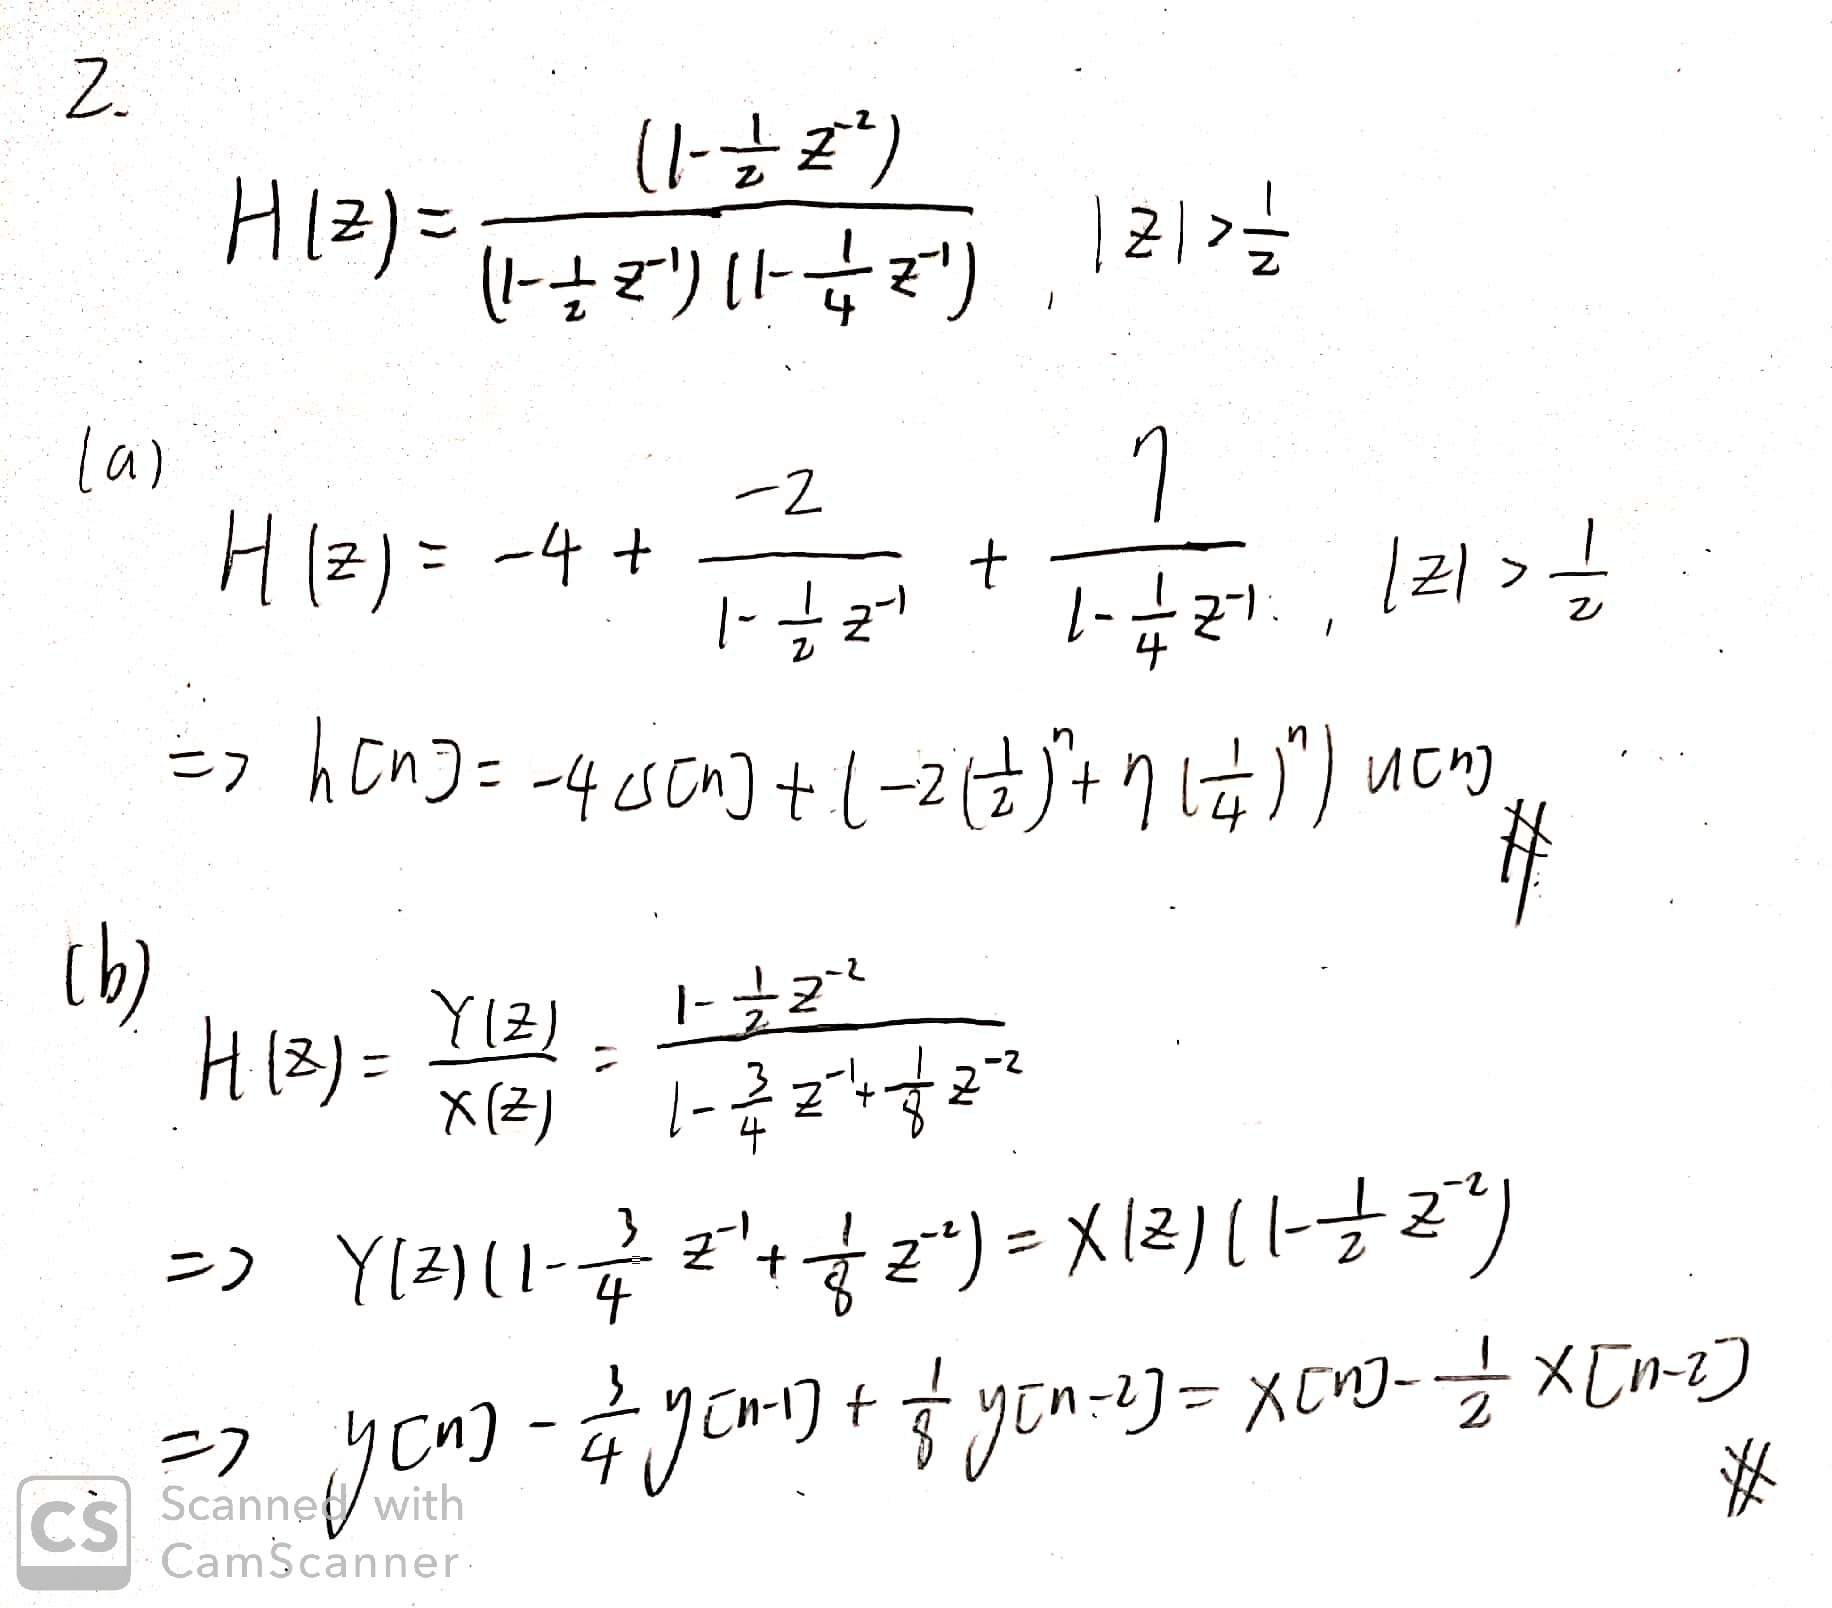 2.
H(z) = (1-1/2 z^-2) / (1-1/2 z^-1)(1-1/4 z^-1) , |z| > 1/2
(a)
H(z) = -4 + -2 / 1-1/2 z^-1 + 7 / 1-1/4 z^-1 , |z| > 1/2
=> h[n] = -4 δ[n] + (-2(1/2)^n + 7(1/4)^n) u[n] #
(b)
H(z) = Y(z) / X(z) = 1-1/2 z^-2 / 1-3/4 z^-1 + 1/8 z^-2
=> Y(z)(1-3/4 z^-1 + 1/8 z^-2) = X(z)(1-1/2 z^-2)
=> y[n] - 3/4 y[n-1] + 1/8 y[n-2] = x[n] - 1/2 x[n-2] #
CS Scanned with
CamScanner